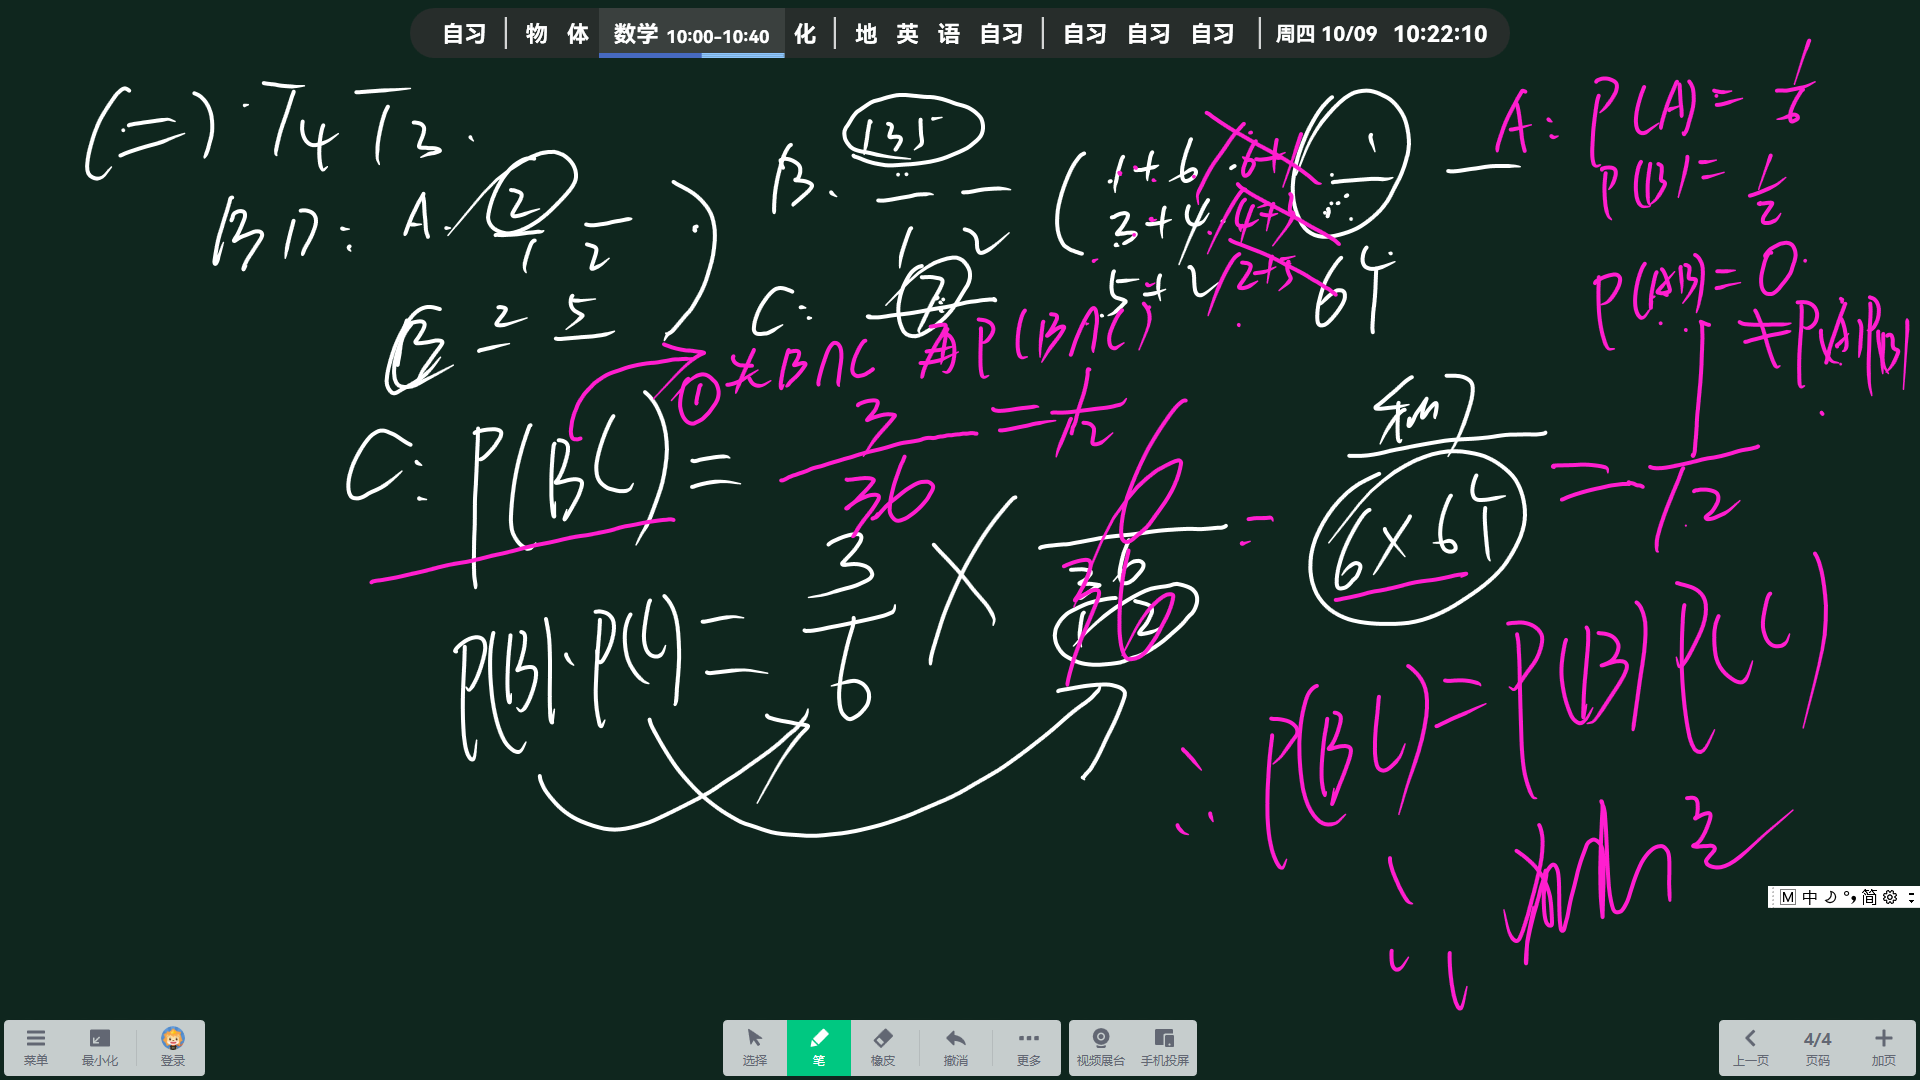 自习 | 物 体 数学 10:00-10:40 化 | 地 英 语 自习 | 自习 自习 自习 | 周四 10/09 10:22:10
(二) T4 T3.
BD: A. 2
1 2
B. 135
1 2
C: 7
1+6 6+1
3+4 4+3
5+2 2+5
64
A: P(A)= 1/6
P(B)= 1/2
P(AB)=0
≠P(A)P(B)
2 5
① 先B∩C 再P(B∩C)
C: P(BC) = 3/36 = 1/12
P(B)·P(C) = 3/6 × 6/36 = 1/12
6×6
∴ P(BC)=P(B)P(C)
M 中 简
菜单 最小化 登录
选择 笔 橡皮 撤消 更多
视频展台 手机投屏
上一页 4/4 页码 加页